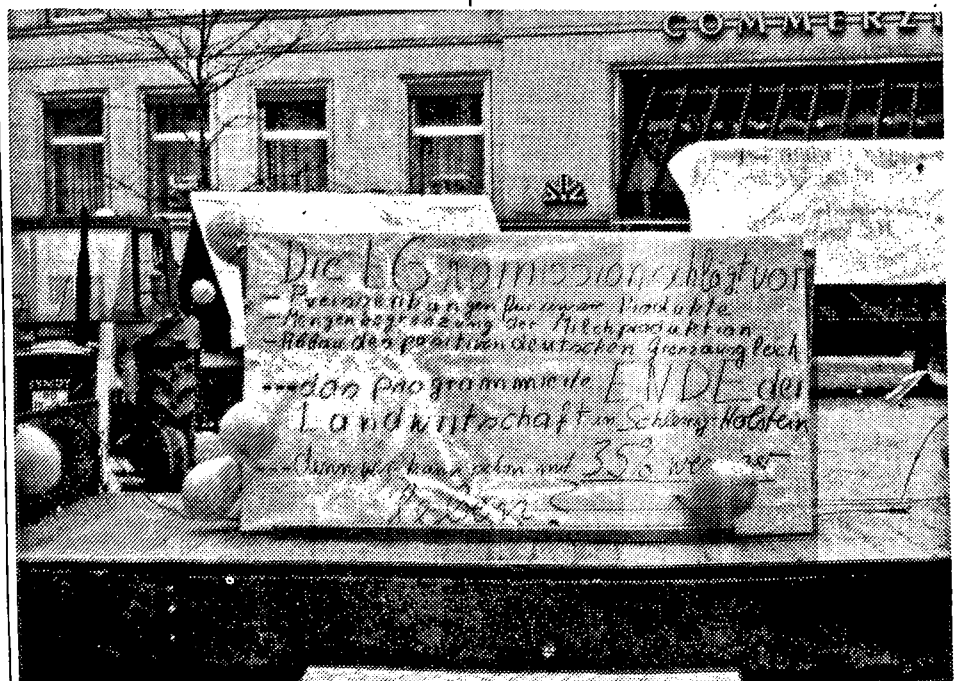 COMMERZ
Die EG Komission schlägt vor
- Preissenkungen für unsere Produkte
- Mengenbegrenzung der Milchproduktion
- Abbau des positiven deutschen Grenzausgleich
...das programmierte ENDE der
Landwirtschaft in Schleswig-Holstein
...denn wer kann schon mit 35%